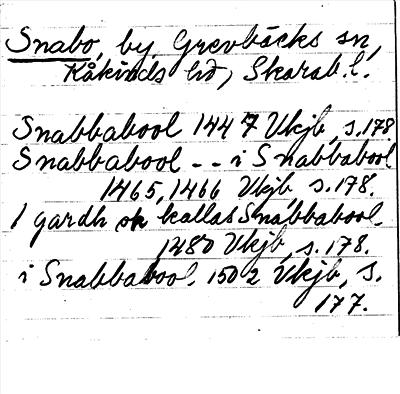 Snabo, by, Grevbäcks sn,
Kåkinds hd, Skarab. l.
Snabbabool 1447 Vkjb, s. 178
Snabbabool - - i Snabbabool
1465, 1466 Vkjb, s. 178.
1 gardh ok kallas Snabbabool.
1480 Vkjb, s. 178.
i Snabbabool. 1502 Vkjb, s.
177.